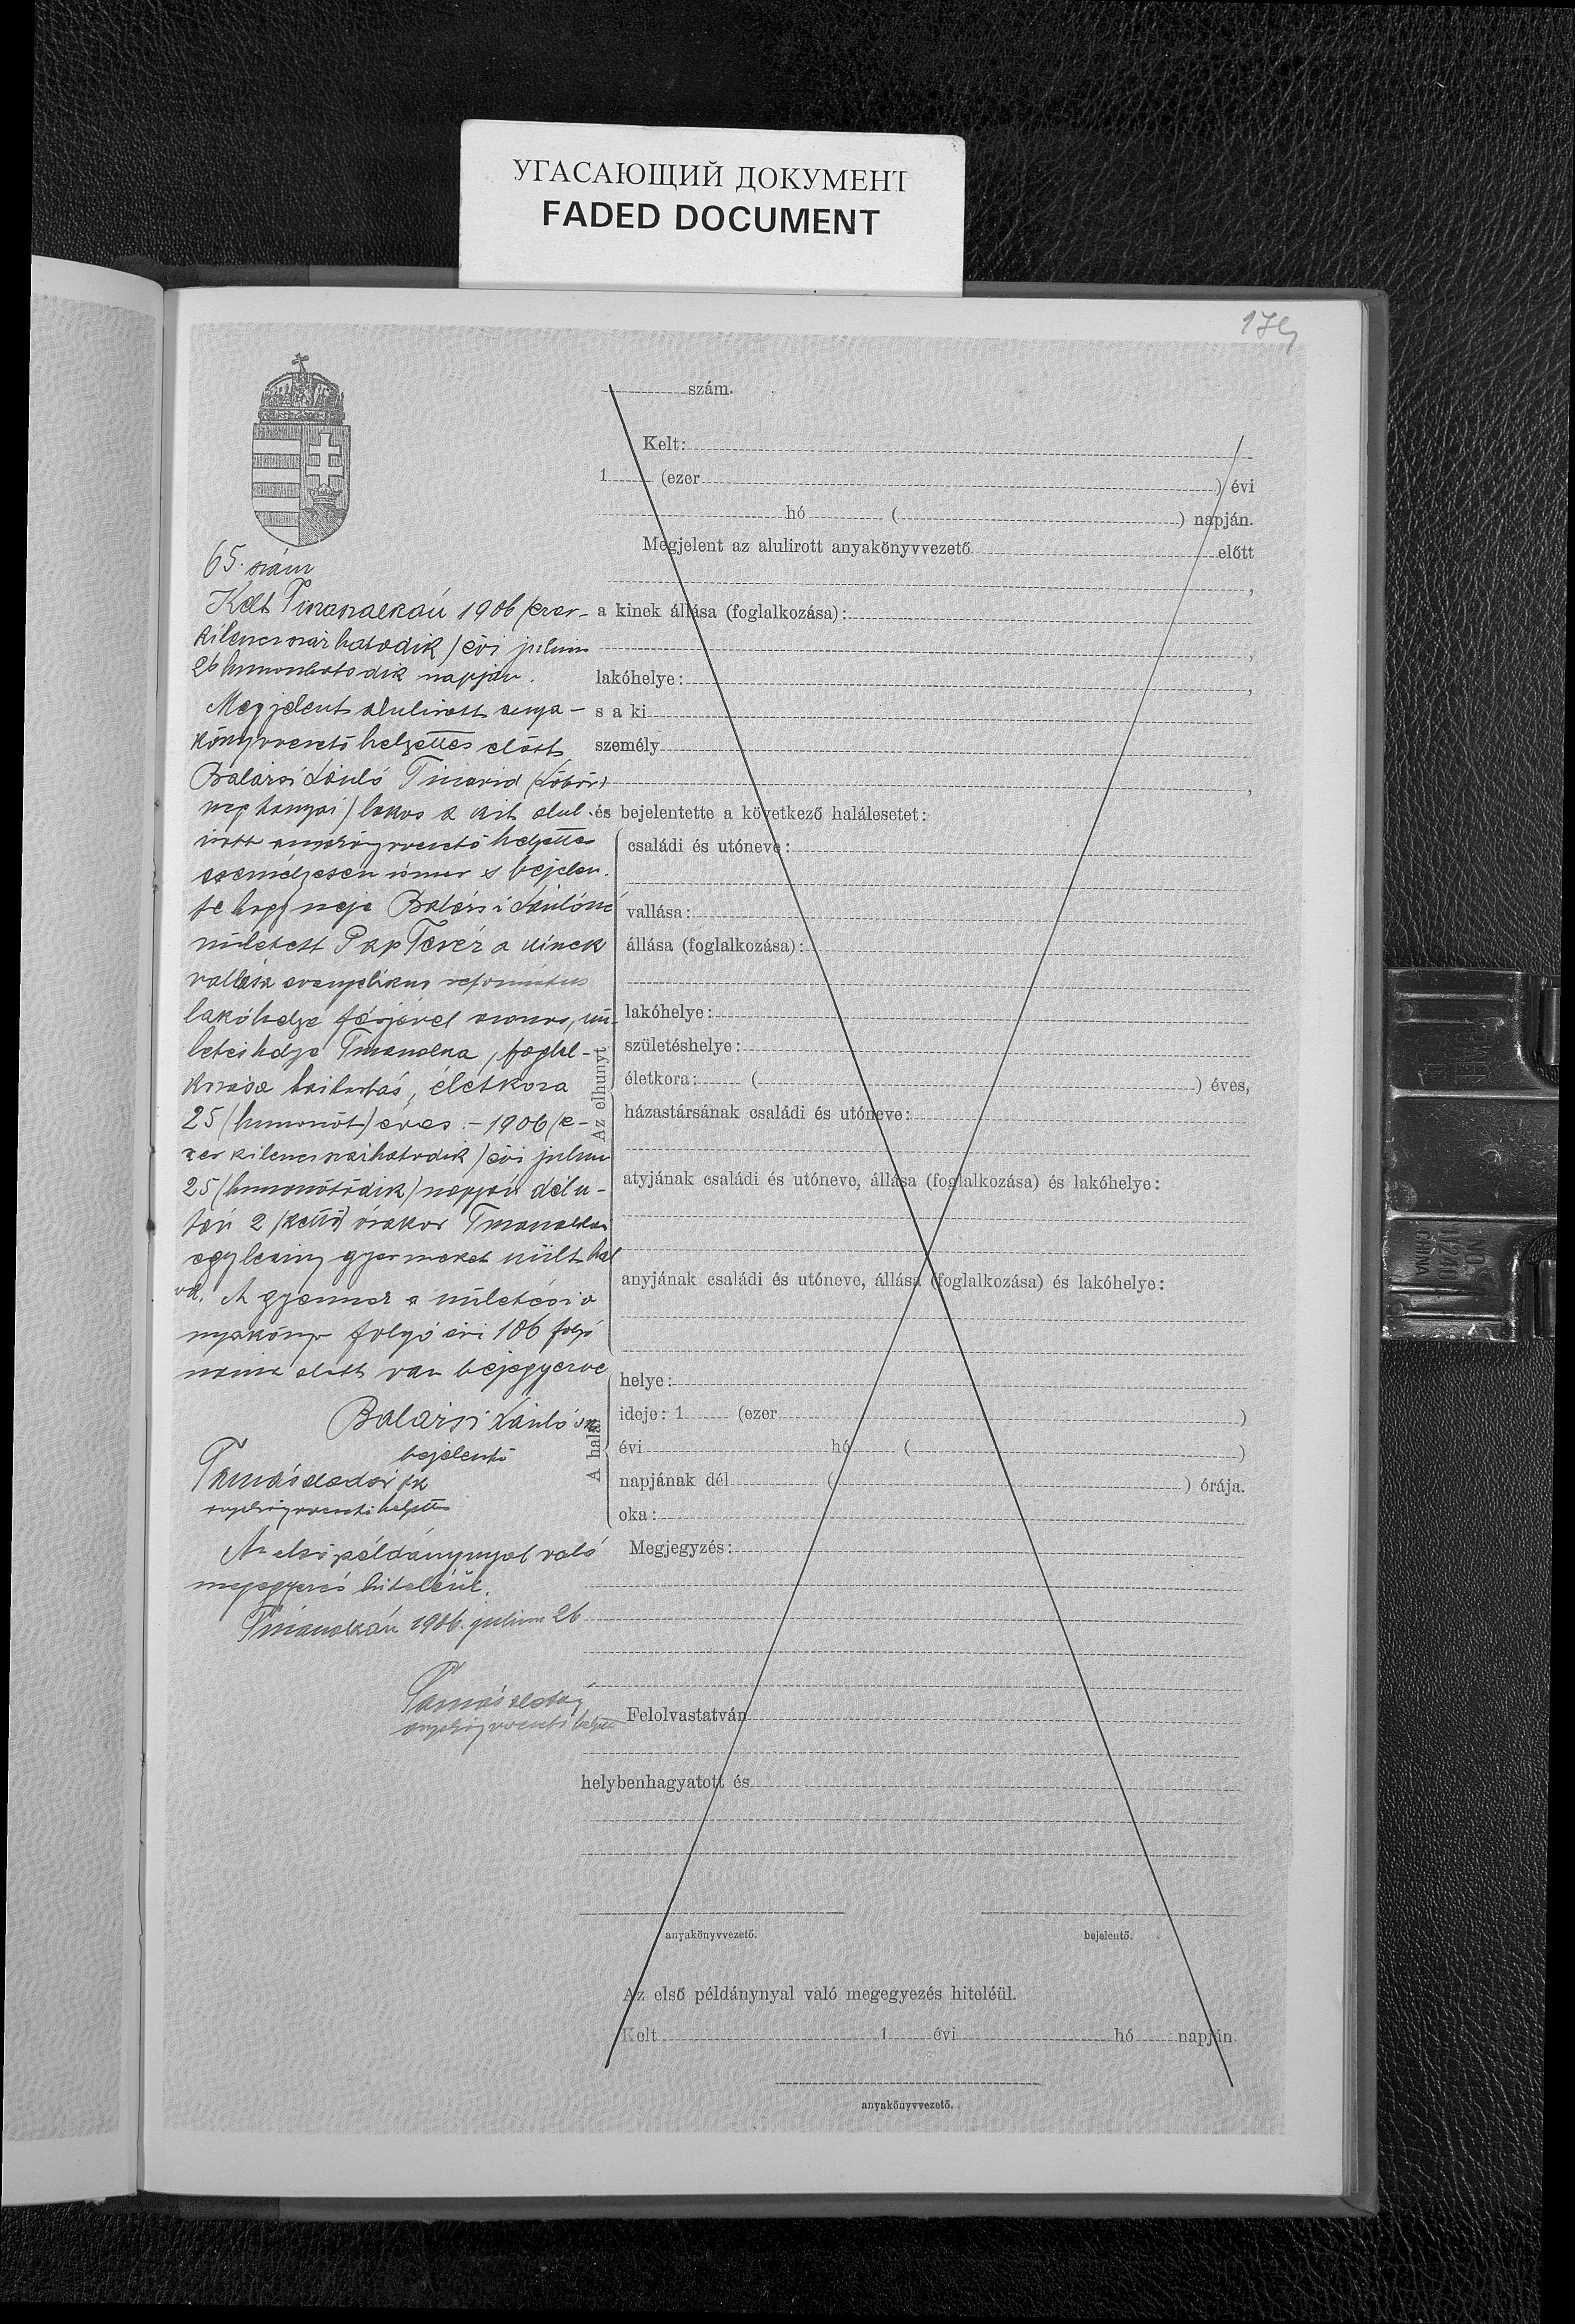 УГАСАЮЩИЙ ДОКУМЕНТ
FADED DOCUMENT
szám.
Kelt:
1 (ezer ) évi
hó ( ) napján.
Megjelent az alulirott anyakönyvvezető előtt
,
a kinek állása (foglalkozása):
,
lakóhelye: ,
s a ki
személy
,
és bejelentette a következő halálesetet:
Az elhunyt
családi és utóneve:
vallása:
állása (foglalkozása):
lakóhelye:
születéshelye:
életkora: ( ) éves,
házastársának családi és utóneve:
atyjának családi és utóneve, állása (foglalkozása) és lakóhelye:
anyjának családi és utóneve, állása (foglalkozása) és lakóhelye:
A halál
helye:
ideje: 1 (ezer )
évi hó ( )
napjának dél ( ) órája.
oka:
Megjegyzés:
Felolvastatván
helybenhagyatott és
anyakönyvvezető. bejelentő.
Az első példánynyal való megegyezés hiteléül.
Kelt 1 évi hó napján.
anyakönyvvezető.
65. szám
Kelt 1906 (ezer-
kilenczszázhatodik) évi julius
26 huszonhatodik napján.
Megjelent alulirott anya-
könyvvezető helyettes előtt
Balázsi László
lakos a kit alul-
irott anyakönyvvezető helyettes
személyesen ismer s bejelen-
te hogy neje Balázsi Lászlóné
született Pap a kinek
vallása evangelikus református
lakóhelye férjével azonos, szü-
letéshelye foglal-
kozása háztartás, életkora
25 (huszonöt) éves - 1906 (e-
zer kilenczszázhatodik) évi julius
25 (huszonötödik) napján délu-
tán 2 (kettő) órakor
egy leány gyermeket szült hal
va. A gyermek a születési a
nyakönyv folyó évi 106 folyó
száma alatt van bejegyezve
Balázsi László sk
bejelentő
Tamás sk
anyakönyvvezető helyettes
Az első példánynyal való
megegyezés hiteléül.
1906. julius 26
Tamás
anyakönyvvezető helyettes